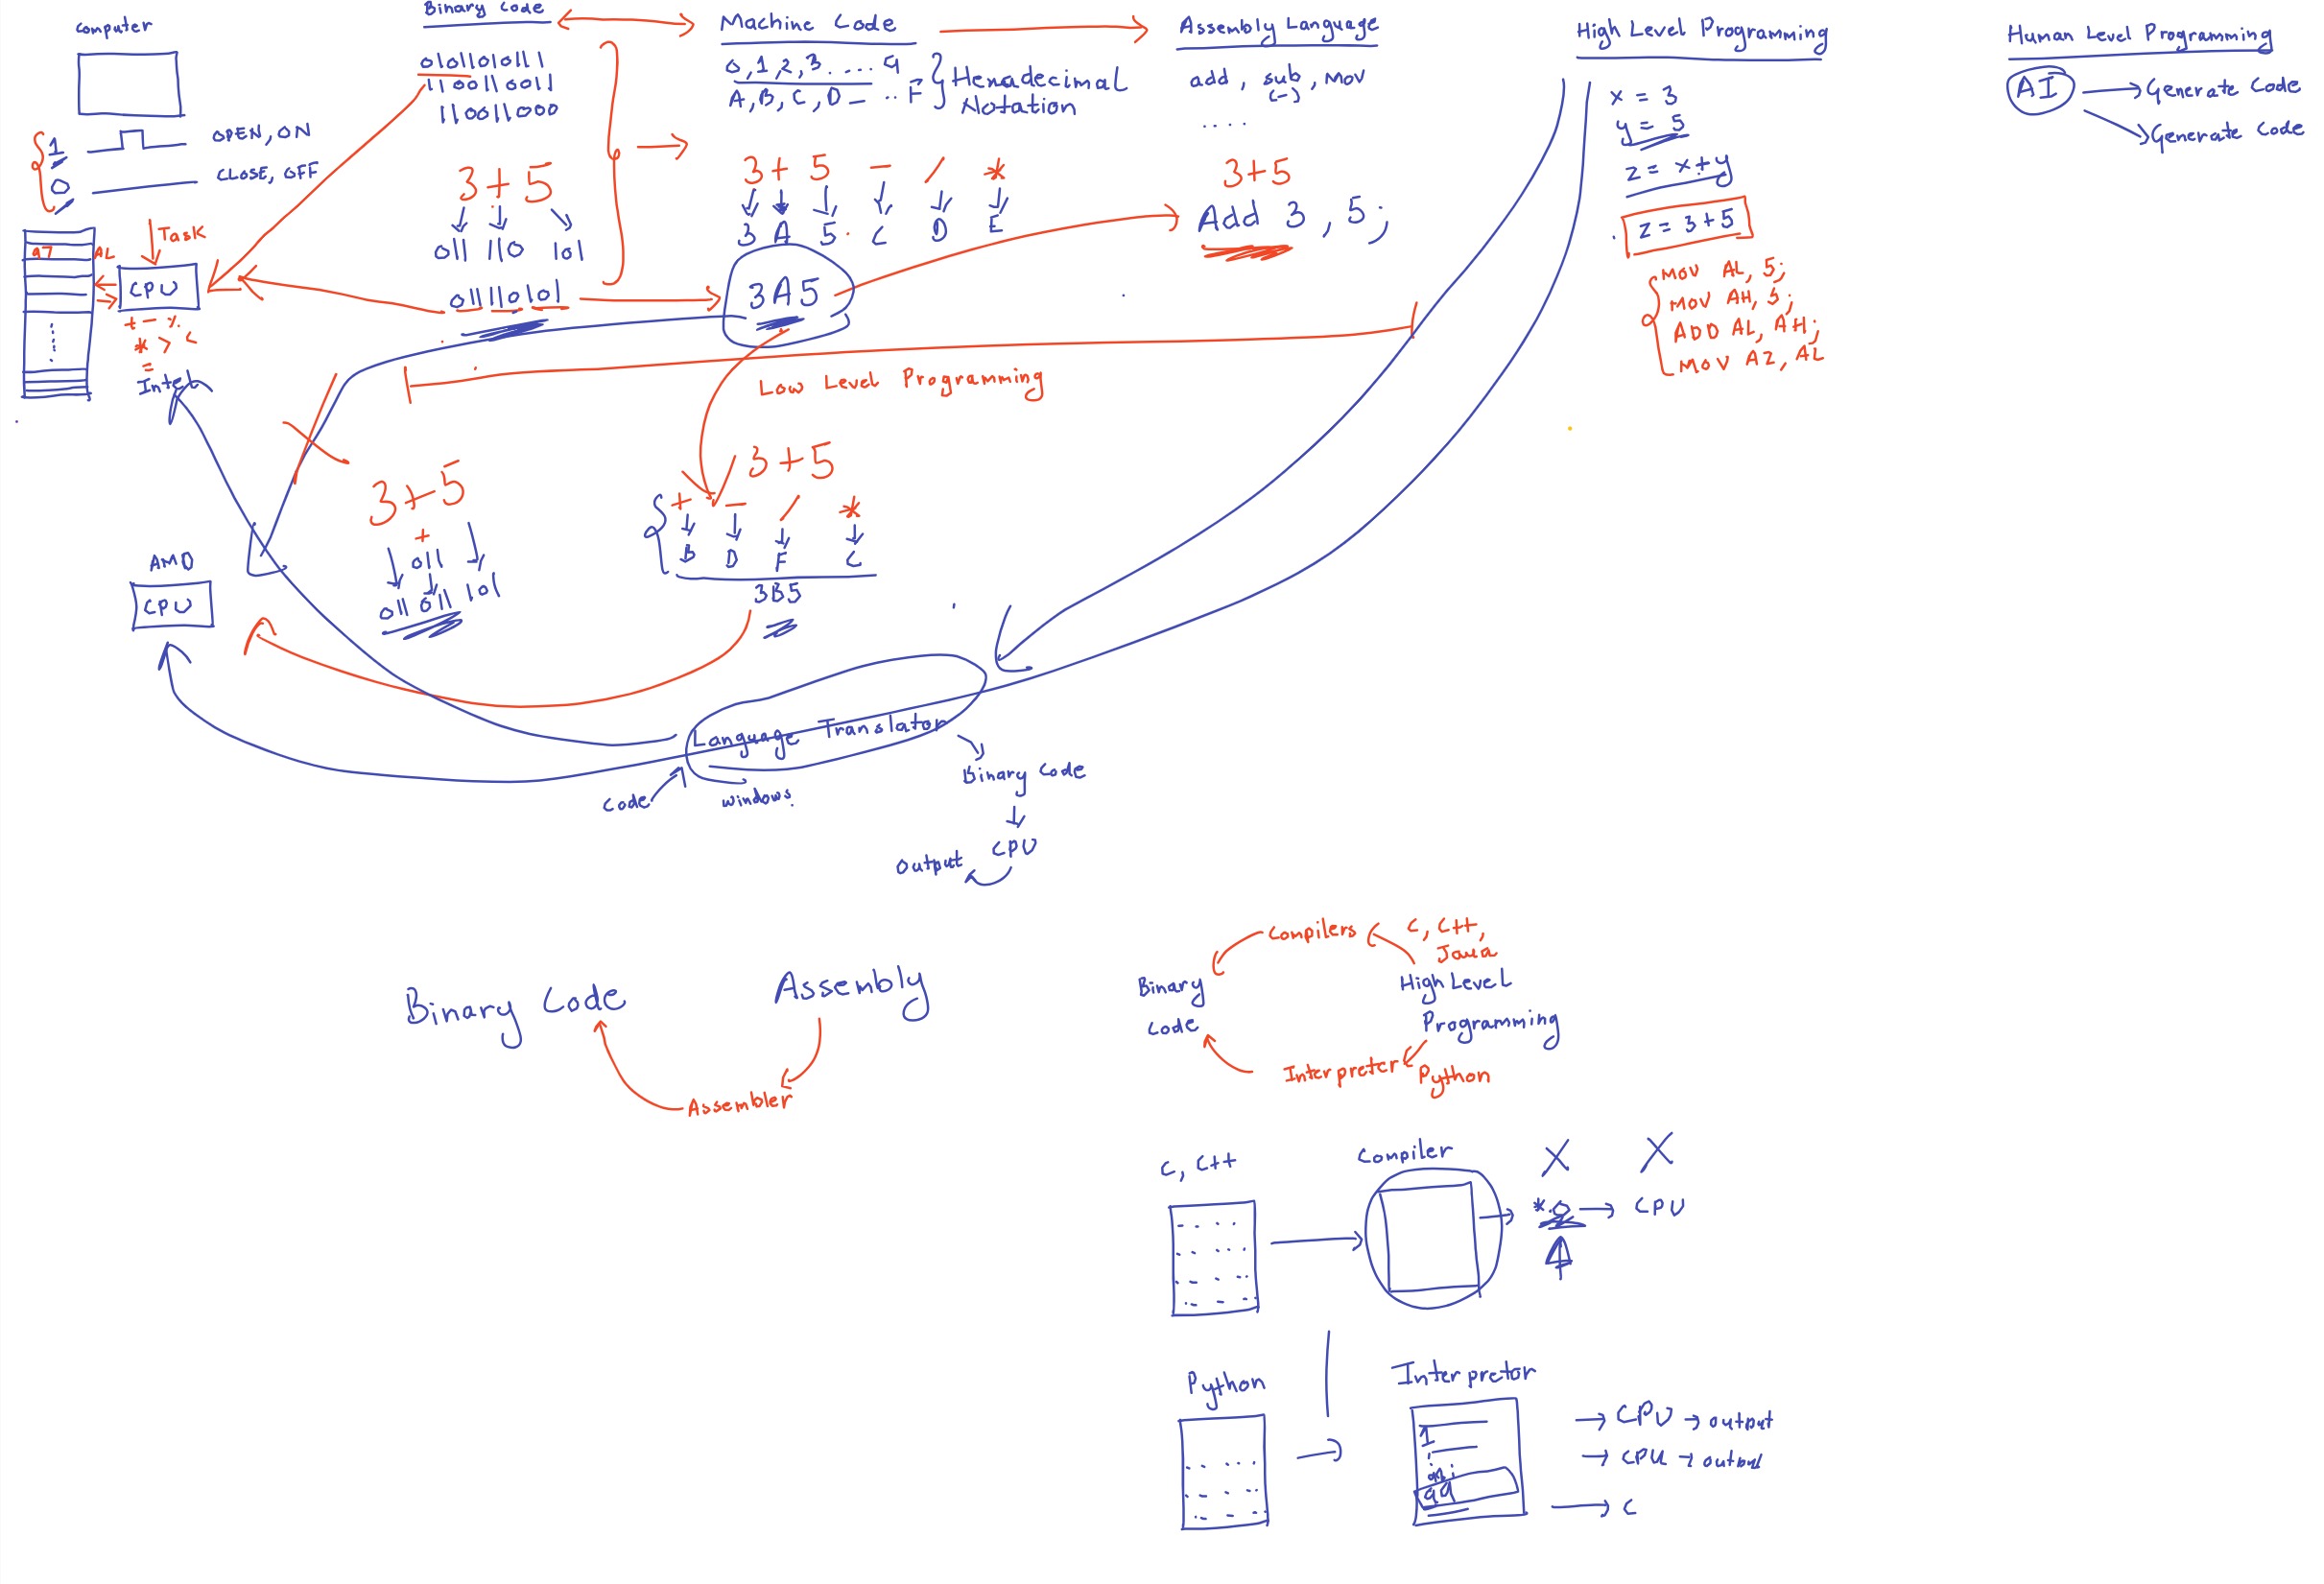 Computer
1
OPEN, ON
0
CLOSE, OFF
Task
97
AL
CPU
+ - %
* > <
=
Intel
AMD
CPU
Binary Code
01011010111
1100110011
110011000
3 + 5
011 110 101
011110101
3+5
+
011
011 011 101
Machine Code
0,1,2,3....9
A,B,C,D_ ..F
Hexadecimal
Notation
3 + 5 - / *
3 A 5 C D E
3A5
Low Level Programming
3+5
+ - / *
B D F C
3B5
Assembly Language
add, sub, MOV
(-)
....
3+5
Add 3, 5;
High Level Programming
x = 3
y = 5
z = x+y
z = 3+5
MOV AL, 5;
MOV AH, 5;
ADD AL, AH;
MOV AZ, AL
Human Level Programming
AI
Generate Code
Generate Code
Language Translator
Code
Windows.
Binary Code
CPU
Output
Binary Code
Assembly
Assembler
Compilers
C, C++,
Java
Binary
Code
High Level
Programming
Interpreter
Python
C, C++
Compiler
X X
*.o
CPU
Python
Interpretor
1
99
CPU → output
CPU → output
C